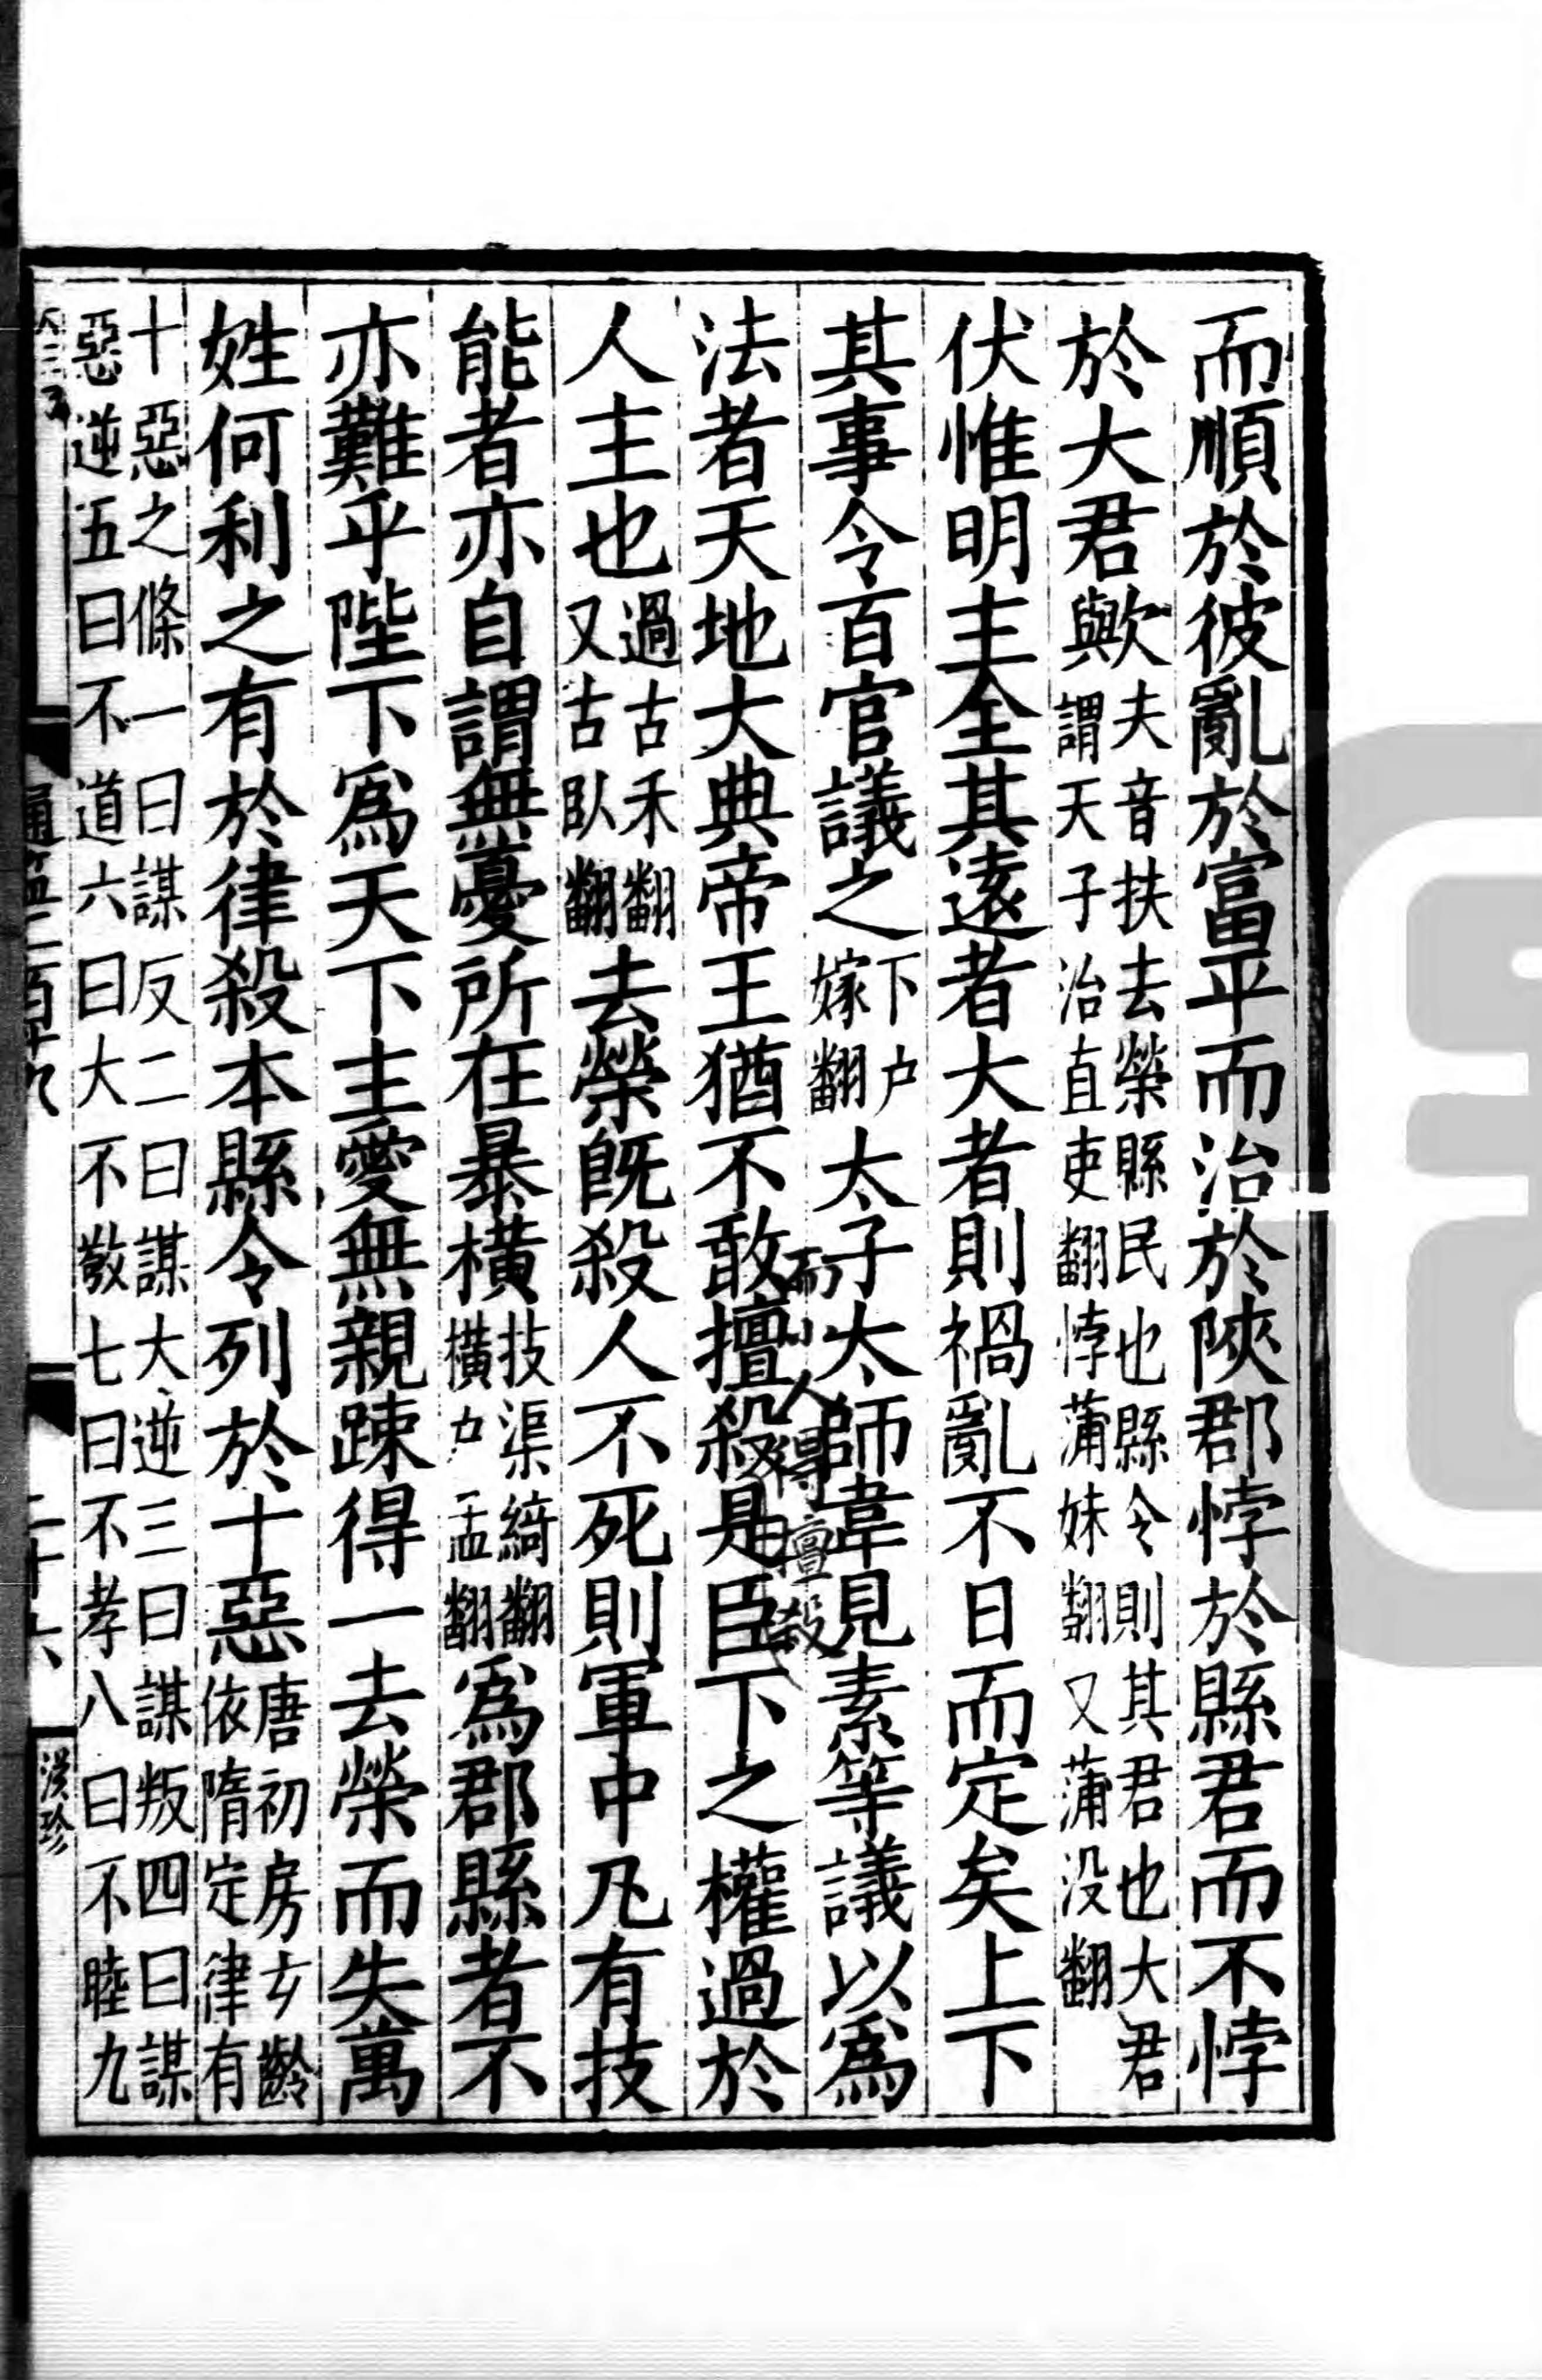 而順於彼亂於富平而治於陝郡悖於縣君而不悖
於大君歟夫音扶去榮縣民也縣令則其君也大君謂天子治直吏翻悖蒲妹翻又蒲没翻
伏惟明主全其遠者大者則禍亂不日而定矣上下
其事令百官議之下户嫁翻太子太師韋見素等議以為
法者天地大典帝王猶不敢擅殺是臣下之權過於
而小人得擅殺
人主也過古禾翻又古臥翻去榮旣殺人不死則軍中凡有技
能者亦自謂無憂所在暴橫技渠綺翻橫户孟翻爲郡縣者不
亦難乎陛下爲天下主愛無親踈得一去榮而失萬
姓何利之有於律殺本縣令列於十惡唐初房玄齡依隋定律有
十惡之條一曰謀反二曰謀大逆三曰謀叛四曰謀惡逆五曰不道六曰大不敬七曰不孝八曰不睦九
通鑑二百十九
二十六